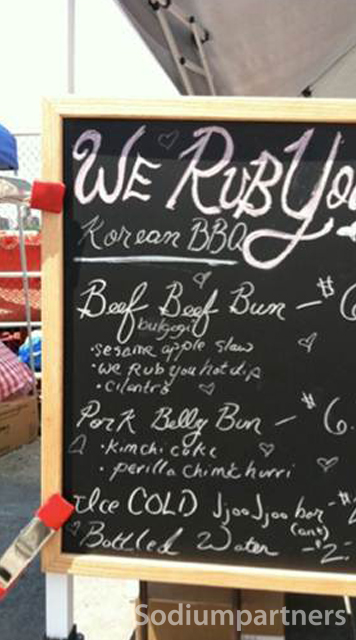 WE RUB You
Korean BBQ
Beef Beef Bun - $6
bulgogi
·sesame apple slaw
·we Rub you hot dip
·cilantro
Pork Belly Bun - $6.
·kimchi cuke
·perilla chimichurri
Ice COLD Jjoo Jjoo bar - $
(ant)
Bottled Water - $2.
Sodiumpartners